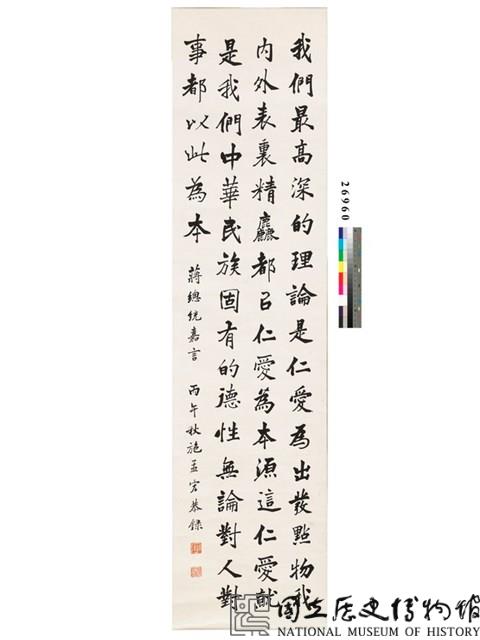 我們最高深的理論是仁愛為出發點物我
內外表裏精麤都㠯仁愛為本源這仁愛就
是我們中華民族固有的德性無論對人對
事都以此為本
蔣總統嘉言 丙午秋施孟宏恭錄
26960
國立歷史博物館
NATIONAL MUSEUM OF HISTORY